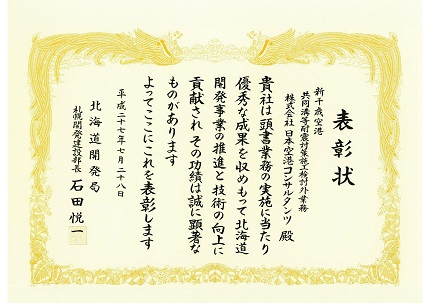 表彰状
新千歳空港
共同溝等耐震対策施工検討外業務
株式会社 日本空港コンサルタンツ 殿
貴社は頭書業務の実施に当たり
優秀な成果を収めもって北海道
開発事業の推進と技術の向上に
貢献され その功績は誠に顕著な
ものがあります
よってここにこれを表彰します
平成二十七年七月二十八日
北海道開発局
札幌開発建設部長 石田悦一